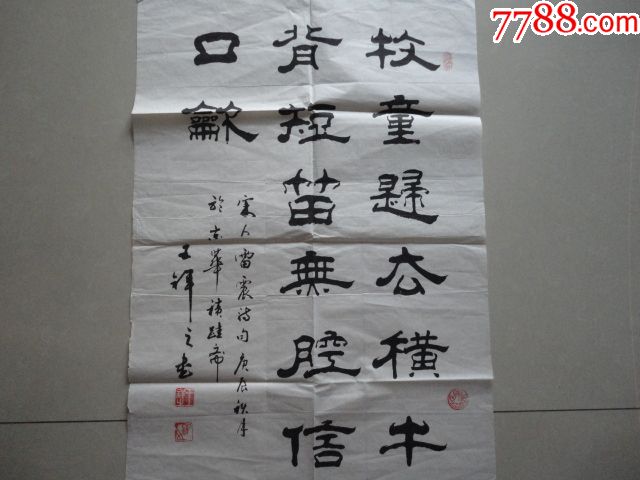 牧童歸去橫牛
背短笛無腔信
口龡
宋人雷震詩句庚辰秋月
於京華積跬齋
王之書
7788.com